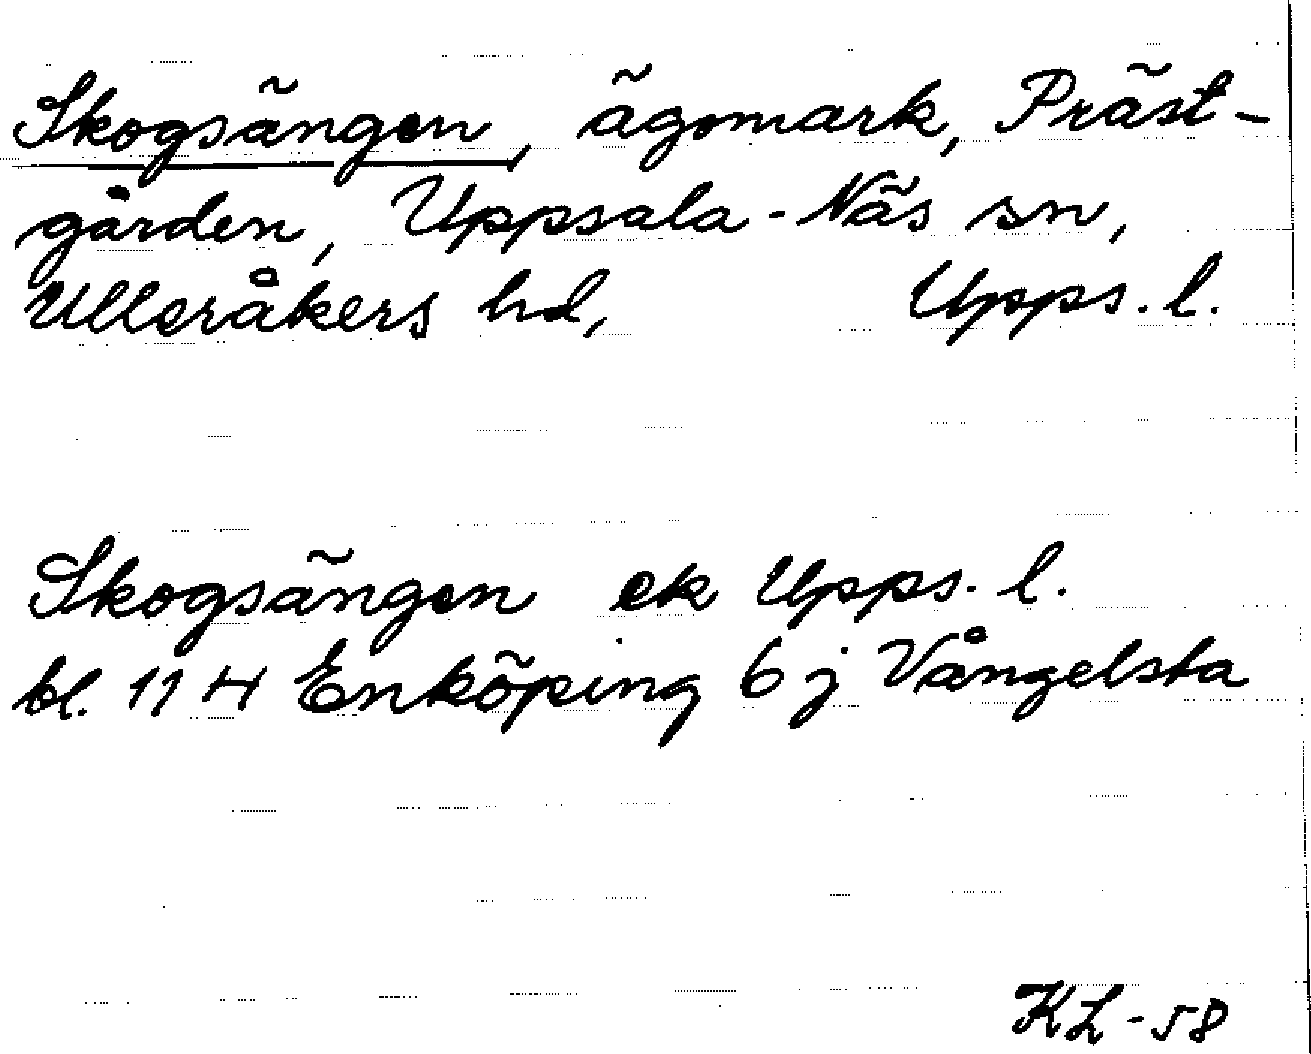 Skogsängen, ägomark, Präst-
gården, Uppsala-Näs sn,
Ulleråkers hd, Upps. l.
Skogsängen ek Upps. l.
bl. 11 H Enköping 6 j Vångelsta
KL-58